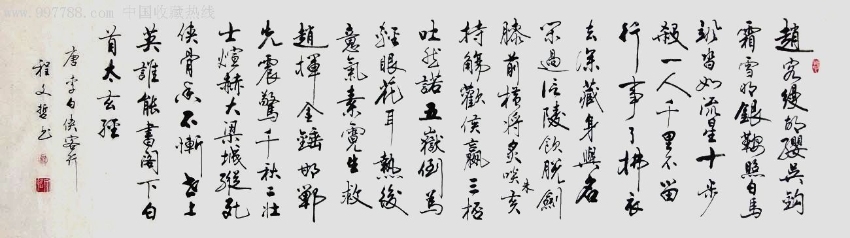 www.997788.com 中国收藏热线
趙客縵胡纓吳鉤
霜雪明銀鞍照白馬
颯沓如流星十步
殺一人千里不留
行事了拂衣
去深藏身與名
閑過信陵飲脫劍
膝前橫將炙啖朱亥
持觴勸侯嬴三杯
吐然諾五嶽倒為
輕眼花耳熱後
意氣素霓生救
趙揮金錘邯鄲
先震驚千秋二壯
士煊赫大梁城縱死
俠骨香不慚世上
英誰能書閣下白
首太玄經
唐李白俠客行
程文哲書